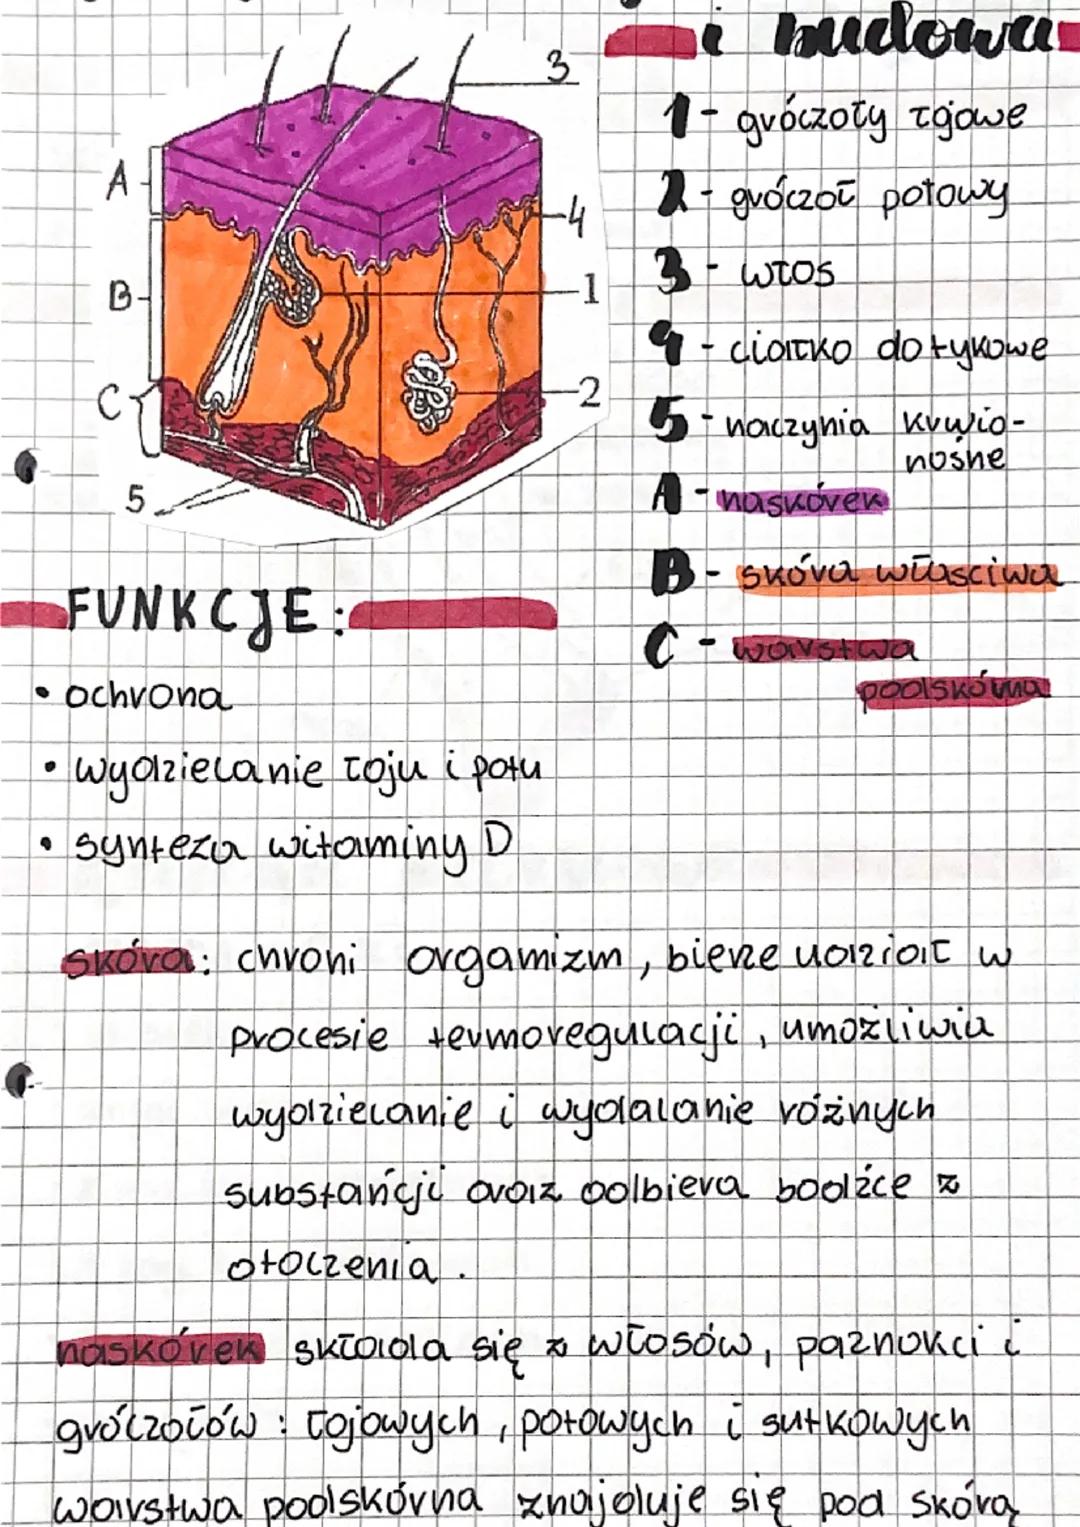 i budowa
3
A
4
B
1
C
2
5
1 - gróczoły łojowe
2 - gróczoł potowy
3 - włos
4 - ciałko dotykowe
5 - naczynia krwio-
nośne
A - naskórek
B - skóra właściwa
C - warstwa
podskórna
FUNKCJE:
• ochrona
• wydzielanie łoju i potu
• synteza witaminy D
skóra: chroni orgamizm, bierze udział w
procesie termoregulacji, umożliwia
wydzielanie i wydalanie różnych
substancji oraz odbiera bodźce z
otoczenia.
naskórek składa się z włosów, paznokci i
gróczołów: łojowych, potowych i sutkowych
warstwa podskórna znajduje się pod skórą